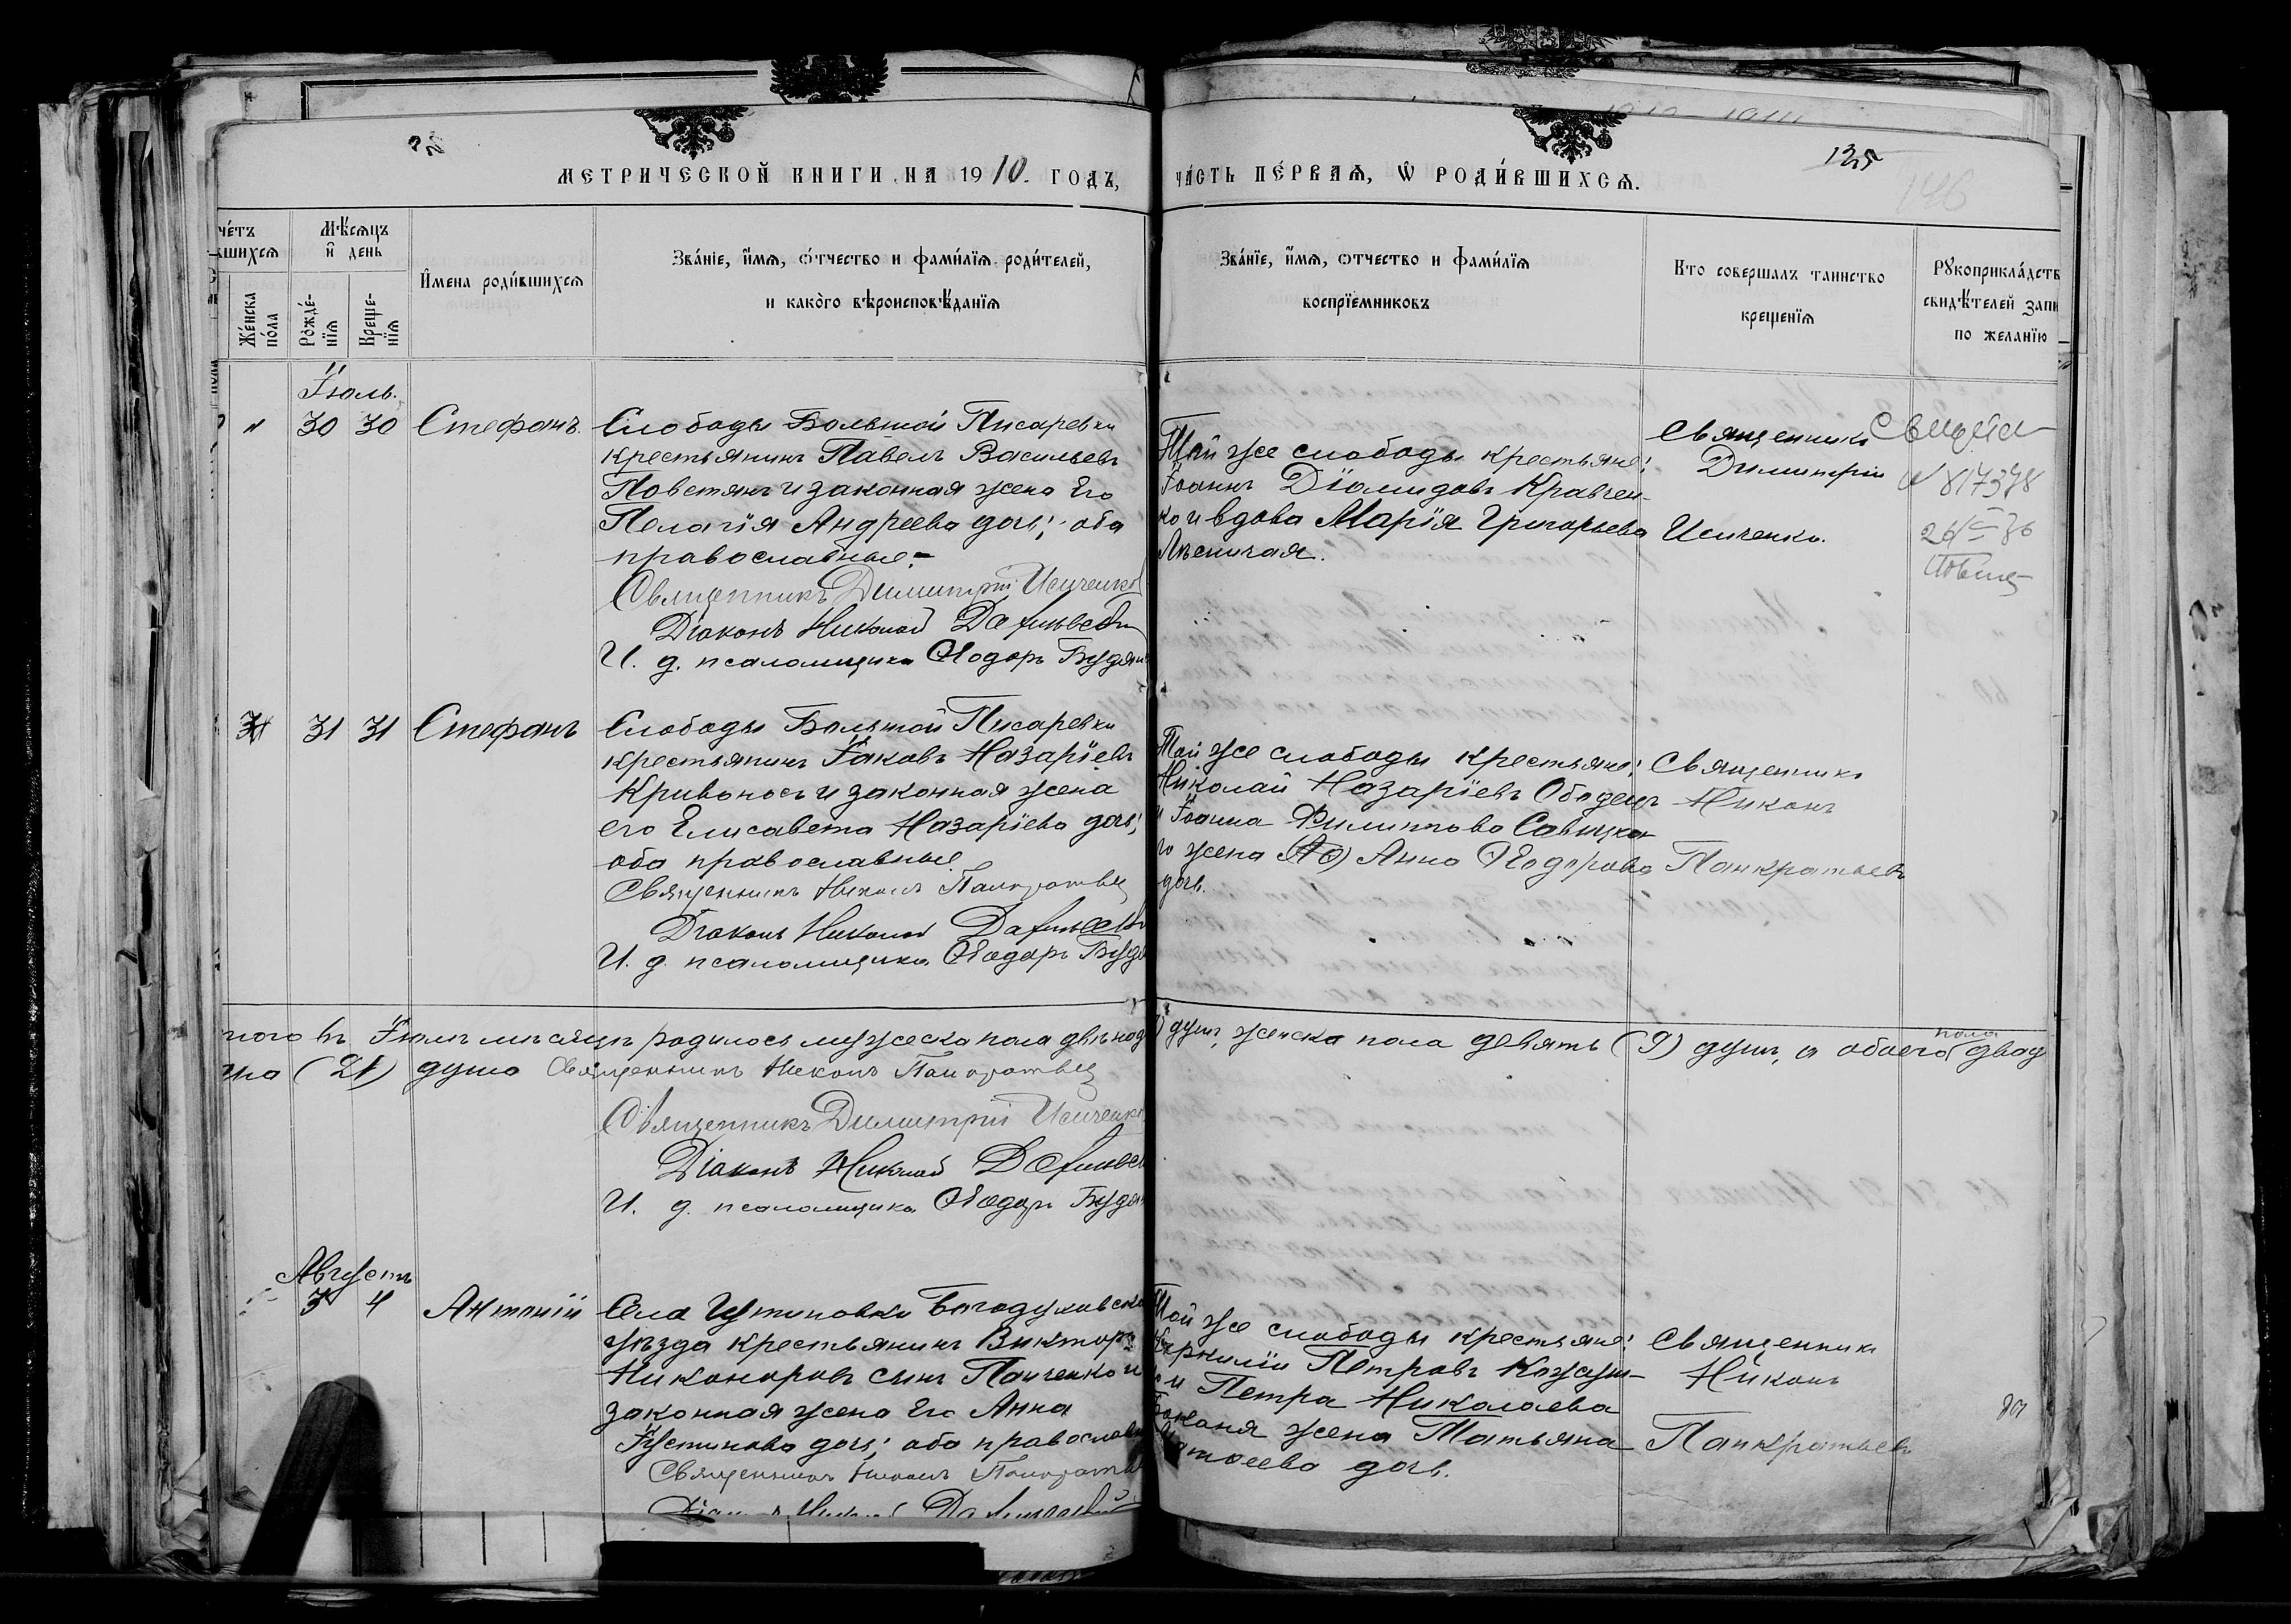 МЕТРИЧЕСКОЙ КНИГИ НА 1910 ГОДЪ,
ЧА́СТЬ ПЕ́РВАѦ, Ѡ РОДИ́ВШИХСѦ.
135
146
Мѣ́сѧцъ и҆ день
Же́нска по́ла
Рожде́нїѧ
Креще́нїѧ
И҆мена роди́вшихсѧ
Зва́нїе, и҆́мѧ, ѻ҆́тчество и фами́лїѧ роди́телей,
и како́го вѣроисповѣ́данїѧ
Зва́нїе, и҆́мѧ, ѻ҆тчество и фами́лїѧ
воспрїемниковъ
Кто совершалъ таинство
крещенїѧ
Рꙋкоприкла́дств
свидѣ́телей запи
по желанїю
Іюль.
30 30 Стефанъ.
Слободы Большой Писаревки
крестьянинъ Павелъ Васильевъ
Повстянъ и законная жена Его
Пелагія Андреева дочь; оба
православные.
Священникъ Димитрій Исиченко
Діаконъ Николай
И. д. псаломщика Ѳеодоръ
Той же слободы крестьяне:
Іоаннъ Діомидовъ Кравчен-
ко и вдова Марія Григорьева
Священникъ
Димитрій
Исиченко.
№ 817378
31 31 Стефанъ
Слободы Большой Писаревки
крестьянинъ Іаковъ Назаріевъ
Кривоносъ и законная жена
его Елисавета Назаріева дочь;
оба православные
Священникъ Никонъ Панкратьевъ
Діаконъ Николай
И. д. псаломщика Ѳеодоръ
Той же слободы крестьяне:
Николай Назаріевъ Ободецъ
и Іоанна Филиппова Савицка-
го жена Анна Ѳеодорова
дочь.
Священникъ
Никонъ
Панкратьевъ
въ Іюлѣ мѣсяцѣ родилось мужеска пола двѣнад
душъ, женска пола девять (9) душъ, а обоего пола двад
(21) душа Священникъ Никонъ Панкратьевъ
Священникъ Димитрій Исиченко
Діаконъ Николай
И. д. псаломщика Ѳеодоръ
Августъ
3 4 Антоній
Села
уѣзда крестьянинъ Викторъ
Никаноровъ сынъ Панченко и
законная жена Его Анна
Іустинова дочь; оба православн
Священникъ Никонъ
Діаконъ Николай
Той же слободы крестьяне:
Петровъ Кожуш-
и Петра Николаева
жена Татьяна
дочь.
Священникъ
Никонъ
Панкратьевъ